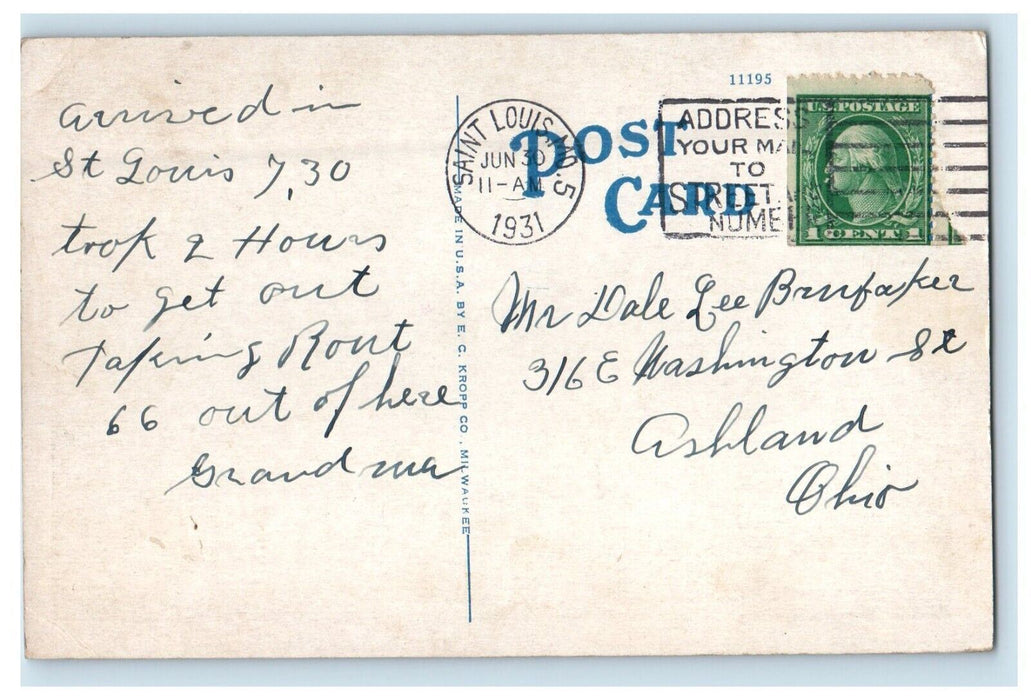 arrived in
St Louis 7,30
took 2 Hours
to get out
Taking Rout
66 out of here
Grandma
MADE IN U.S.A. BY E. C. KROPP CO., MILWAUKEE
11195
POST
CARD
SAINT LOUIS, MO. 5
JUN 30
11-AM
1931
ADDRESS
YOUR MAIL
TO
STREET
U.S. POSTAGE
1 CENT 1
Mr Dale Lee Brubaker
316 E Washington St
Ashland
Ohio